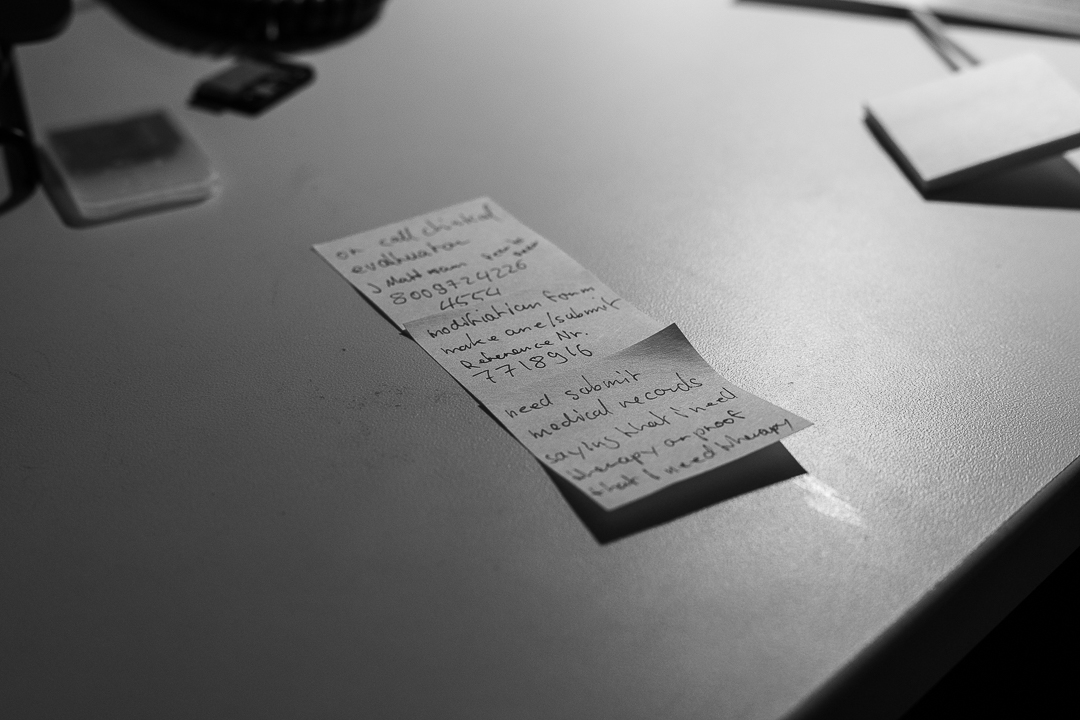 on call clinical
evaluation
8009724226
4554
modification form
make one/submit
Reference Nr.
7718916
need submit
medical records
saying that i need
therapy or proof
that I need therapy